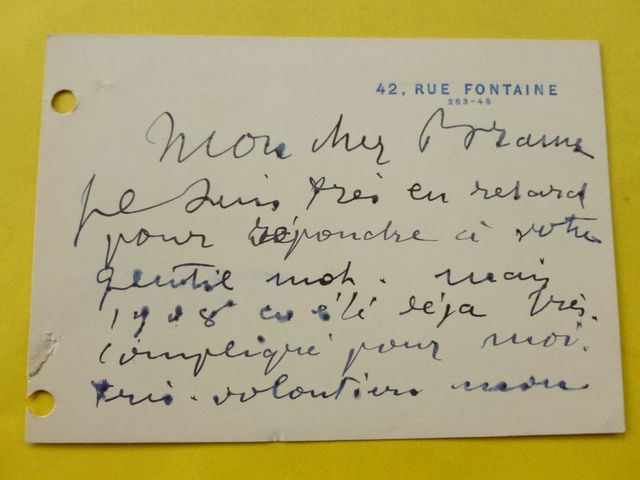 42, RUE FONTAINE
263-49
Mon cher
je suis très en retard
pour répondre à votre
gentil mot. mais
a été déjà très.
compliqué pour moi.
très. volontiers mon